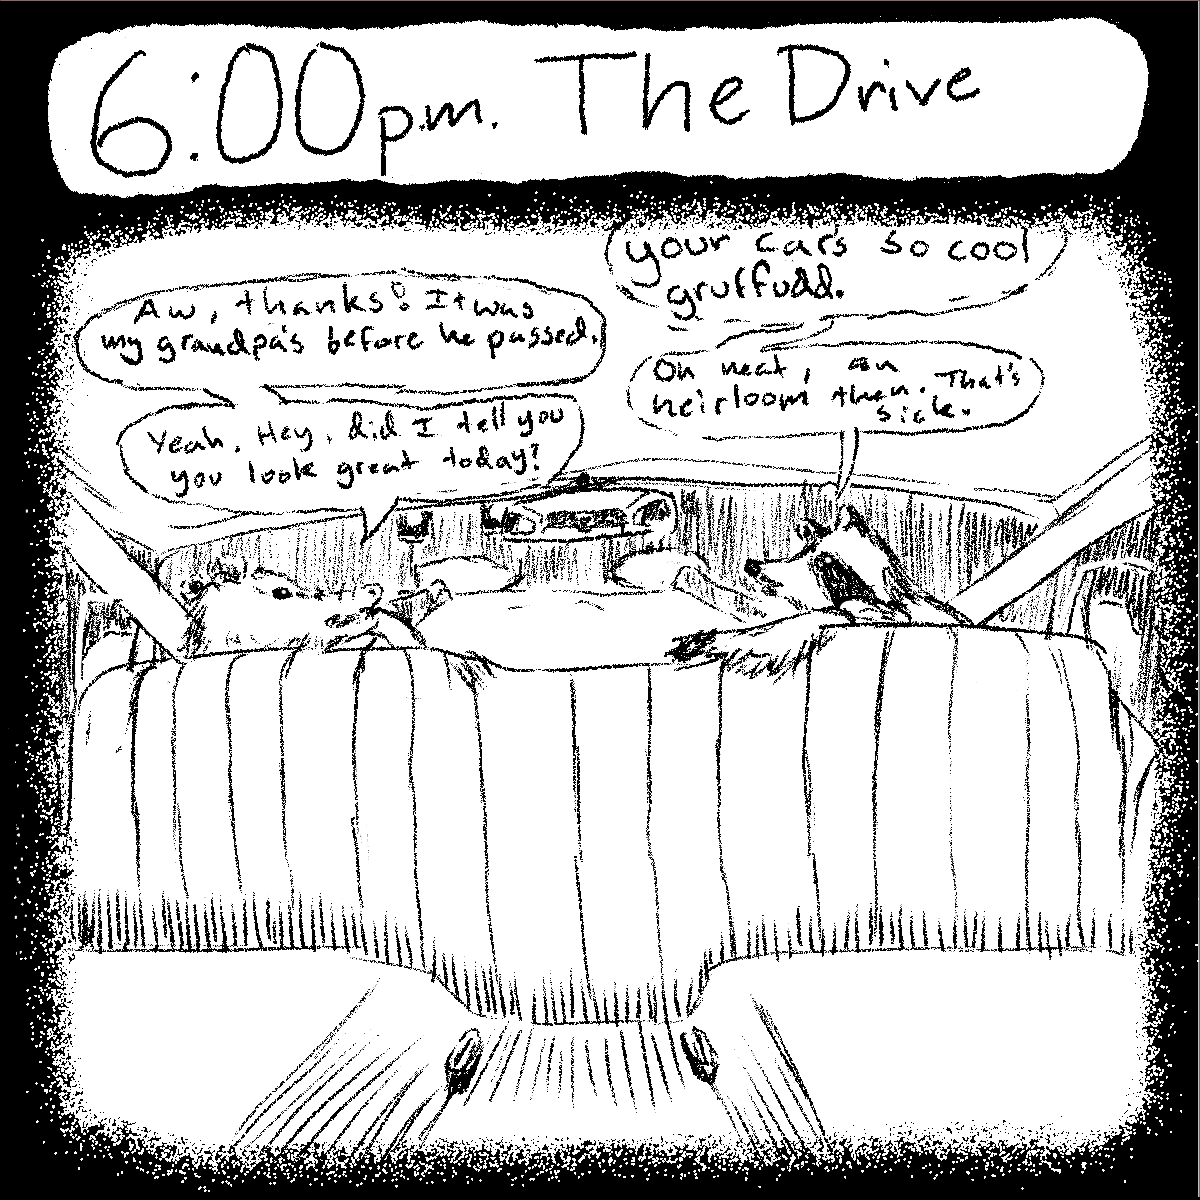 6:00 p.m. The Drive
your cars so cool
gruffudd.
Aw, thanks! It was
my grandpa's before he passed.
Oh neat, an
heirloom then. That's
sick.
Yeah. Hey, did I tell you
you look great today?